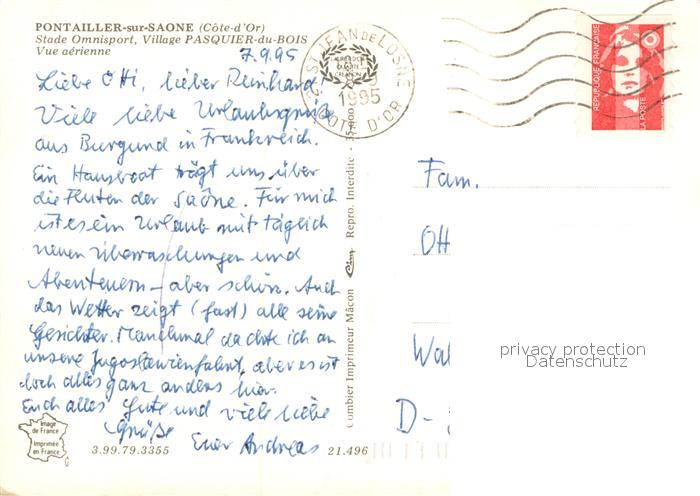 PONTAILLER-sur-SAONE (Côte-d'Or)
Stade Omnisport, Village PASQUIER-du-BOIS
Vue aérienne
7.9.95
Liebe Otti, lieber Reinhard!
Viele liebe Urlaubsgrüße
aus Burgund in Frankreich.
Ein Hausboot trägt uns über
die Fluten der Saône. Für mich
ist es ein Urlaub mit täglich
neuen Überraschungen und
Abenteuern – aber schön. Auch
das Wetter zeigt (fast) alle seine
Gesichter. Manchmal dachte ich an
unsere Jugoslawienfahrt, aber es ist
doch alles ganz anders hier.
Euch alles Gute und viele liebe
Grüße
Euer Andreas
Image
de France
Imprimée
en France
3.99.79.3355
21.496
Combier Imprimeur Mâcon Cim Repro. Interdite - 35.000
ST JEAN de LOSNE
1995
COTE D'OR
REPUBLIQUE FRANÇAISE
LA POSTE
Fam.
Ott
Wal
D-
privacy protection
Datenschutz